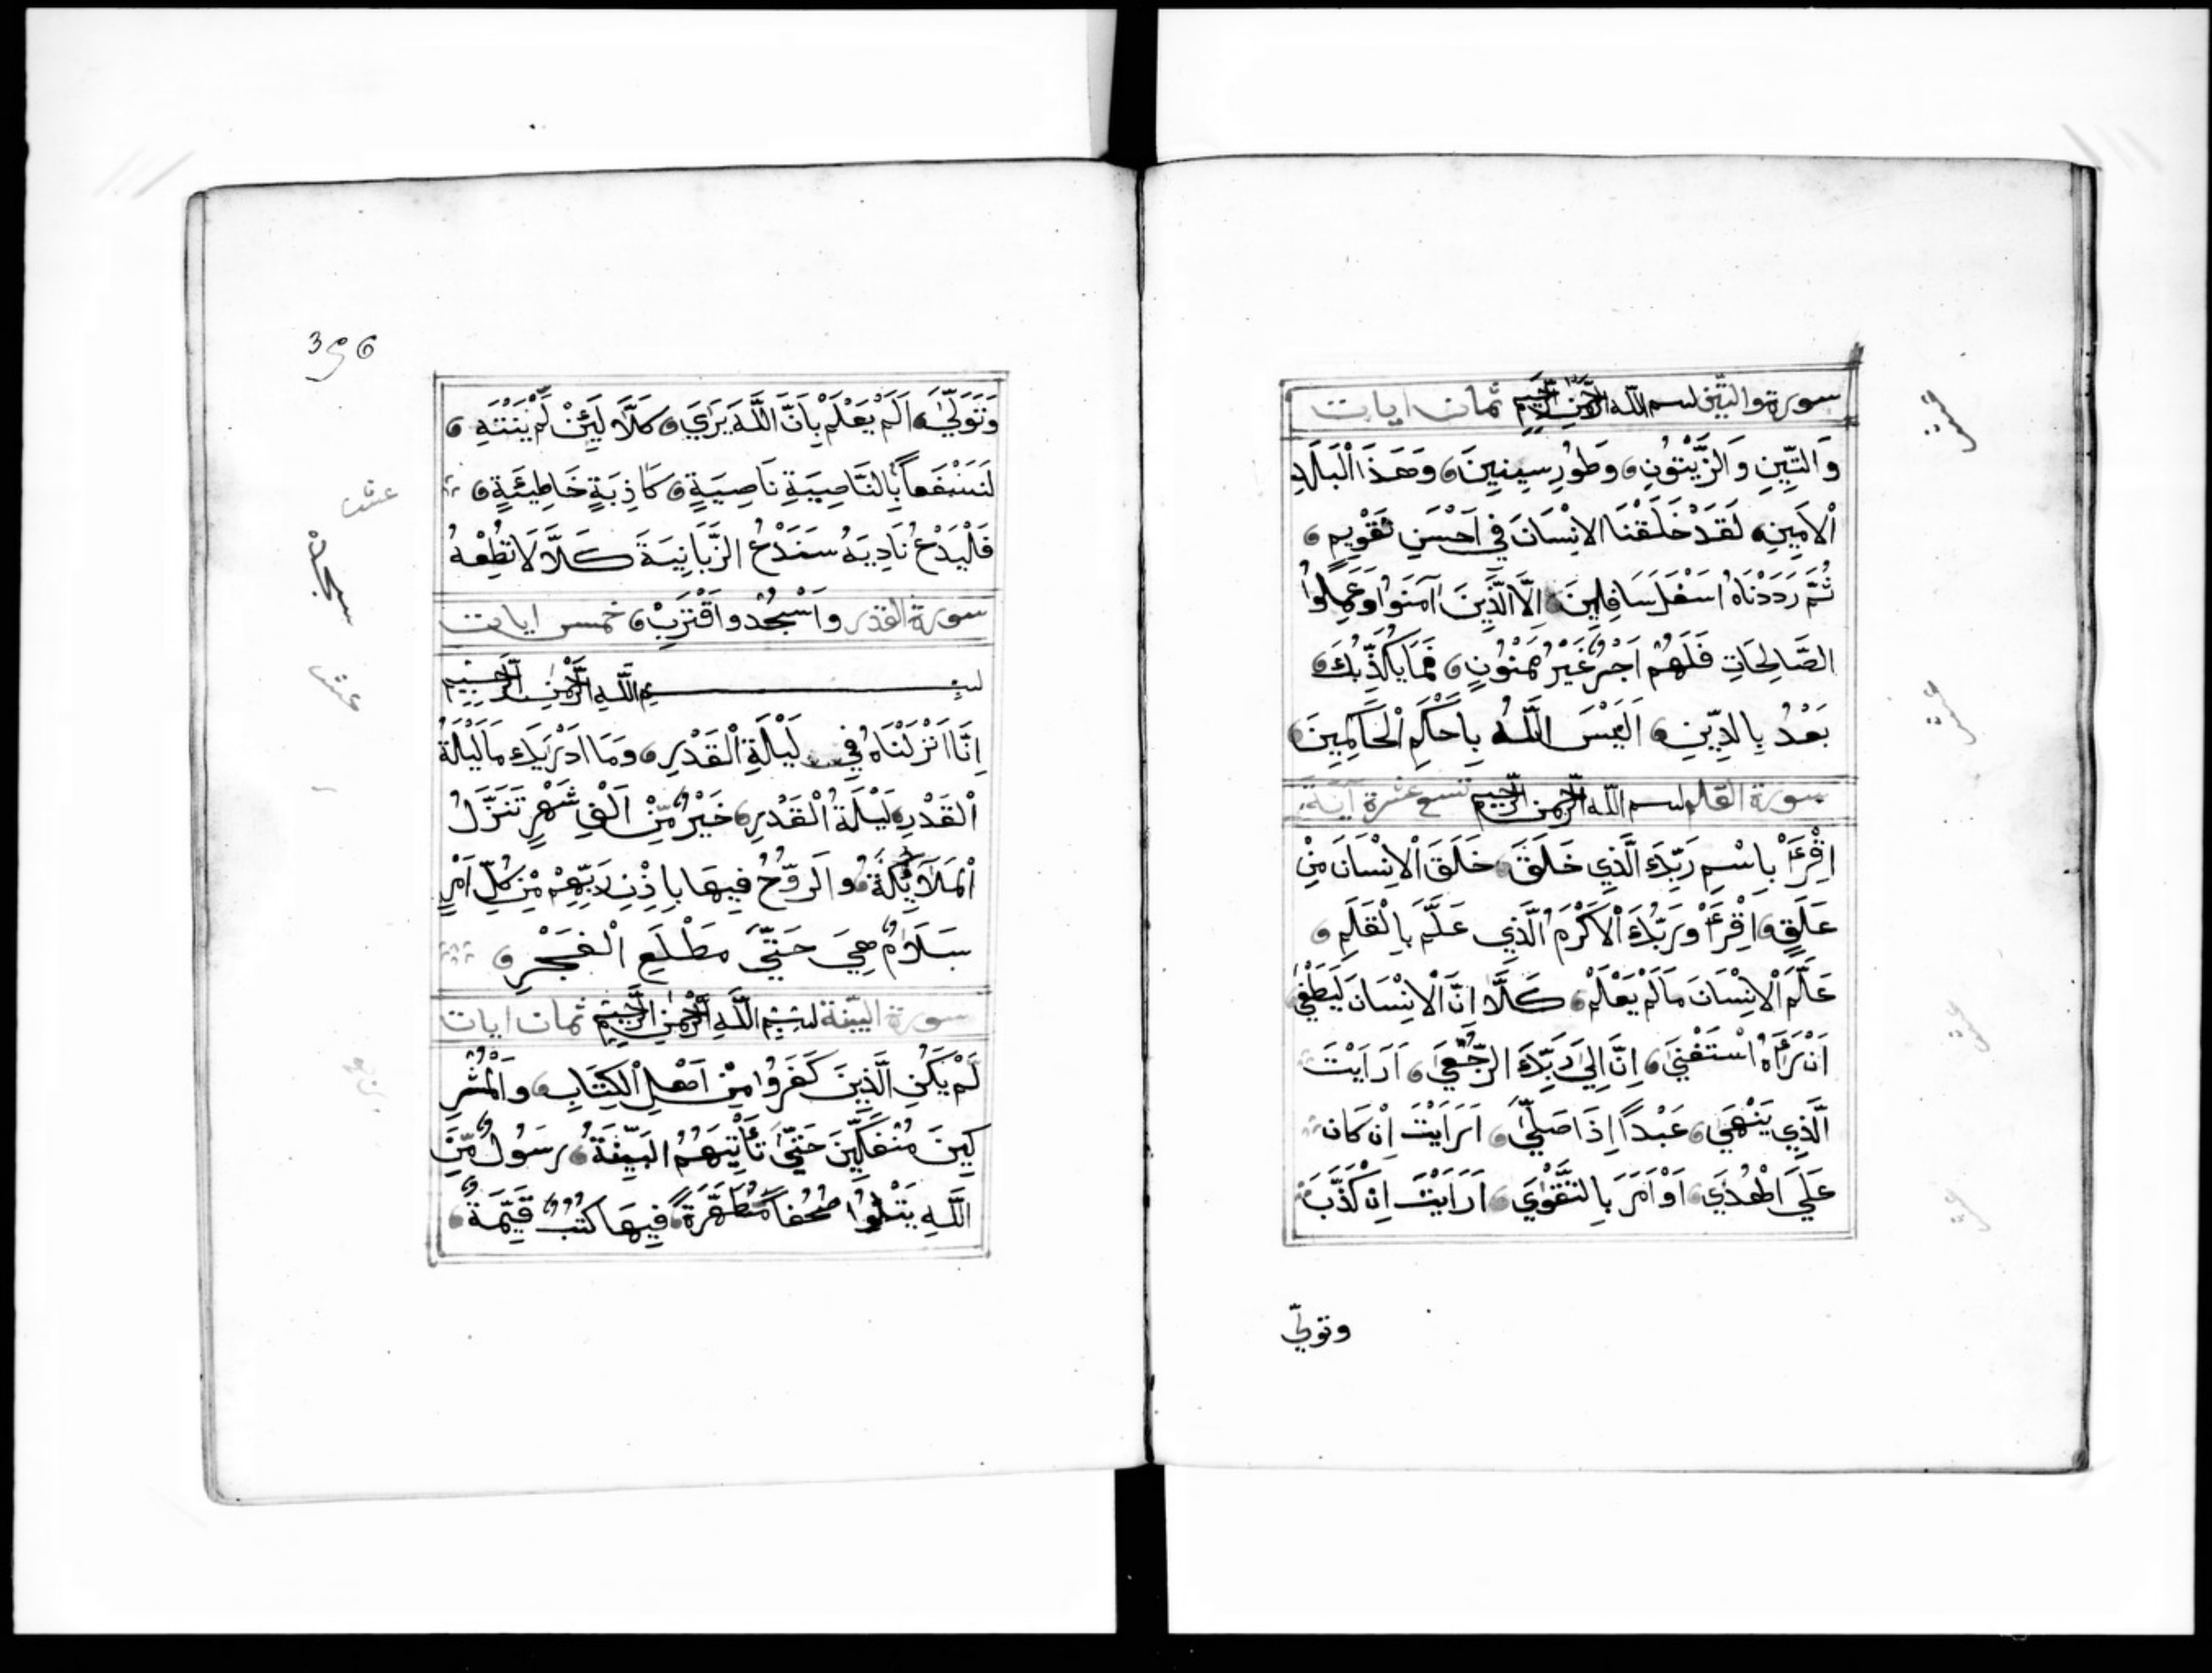 سورة والتين بسم الله الرحمن الرحيم ثمان ايات
وَالتِّينِ وَالزَّيْتُونِ وَطُورِ سِينِينَ وَهَذَا الْبَلَدِ
الْاَمِينِ لَقَدْ خَلَقْنَا الاِنْسَانَ فِي اَحْسَنِ تَقْوِيمٍ
ثُمَّ رَدَدْنَاهُ اَسْفَلَ سَافِلِينَ اِلَّا الَّذِينَ آمَنُوا وَعَمِلُوا
الصَّالِحَاتِ فَلَهُمْ اَجْرٌ غَيْرُ مَمْنُونٍ فَمَا يُكَذِّبُكَ
بَعْدُ بِالدِّينِ اَلَيْسَ اللَّهُ بِاَحْكَمِ الْحَاكِمِينَ
سورة القلم بسم الله الرحمن الرحيم تسع عشرة آية
اِقْرَأْ بِاسْمِ رَبِّكَ الَّذِي خَلَقَ خَلَقَ الْاِنْسَانَ مِنْ
عَلَقٍ اِقْرَأْ وَرَبُّكَ الْاَكْرَمُ الَّذِي عَلَّمَ بِالْقَلَمِ
عَلَّمَ الْاِنْسَانَ مَا لَمْ يَعْلَمْ كَلَّا اِنَّ الْاِنْسَانَ لَيَطْغَى
اَنْ رَأَاهُ اسْتَغْنَى اِنَّ اِلَى رَبِّكَ الرُّجْعَى اَرَاَيْتَ
الَّذِي يَنْهَى عَبْدًا اِذَا صَلَّى اَرَاَيْتَ اِنْ كَانَ
عَلَى الْهُدَى اَوْ اَمَرَ بِالتَّقْوَى اَرَاَيْتَ اِنْ كَذَّبَ
وتولّى
396
وَتَوَلَّى اَلَمْ يَعْلَمْ بِاَنَّ اللَّهَ يَرَى كَلَّا لَئِنْ لَمْ يَنْتَهِ
لَنَسْفَعاً بِالنَّاصِيَةِ نَاصِيَةٍ كَاذِبَةٍ خَاطِئَةٍ
عشر
فَلْيَدْعُ نَادِيَهُ سَنَدْعُ الزَّبَانِيَةَ كَلَّا لَا تُطِعْهُ
سورة القدر وَاسْجُدْ وَاقْتَرِبْ خمس ايات
بسم اللَّهِ الرَّحْمٰنِ الرَّحِيمِ
اِنَّا اَنْزَلْنَاهُ فِي لَيْلَةِ الْقَدْرِ وَمَا اَدْرَيكَ مَا لَيْلَةُ
الْقَدْرِ لَيْلَةُ الْقَدْرِ خَيْرٌ مِنْ اَلْفِ شَهْرٍ تَنَزَّلُ
الْمَلَائِكَةُ وَالرُّوحُ فِيهَا بِاِذْنِ رَبِّهِمْ مِنْ كُلِّ اَمْرٍ
سَلَامٌ هِيَ حَتَّى مَطْلَعِ الْفَجْرِ
سورة البينة بسم اللَّهِ الرَّحْمٰنِ الرَّحِيمِ ثمان ايات
لَمْ يَكُنِ الَّذِينَ كَفَرُوا مِنْ اَهْلِ الْكِتَابِ وَالْمُشْرِ
كِينَ مُنْفَكِّينَ حَتَّى تَأْتِيَهُمُ الْبَيِّنَةُ رَسُولٌ مِّنَ
اللَّهِ يَتْلُوا صُحُفاً مُطَهَّرَةً فِيهَا كُتُبٌ قَيِّمَةٌ